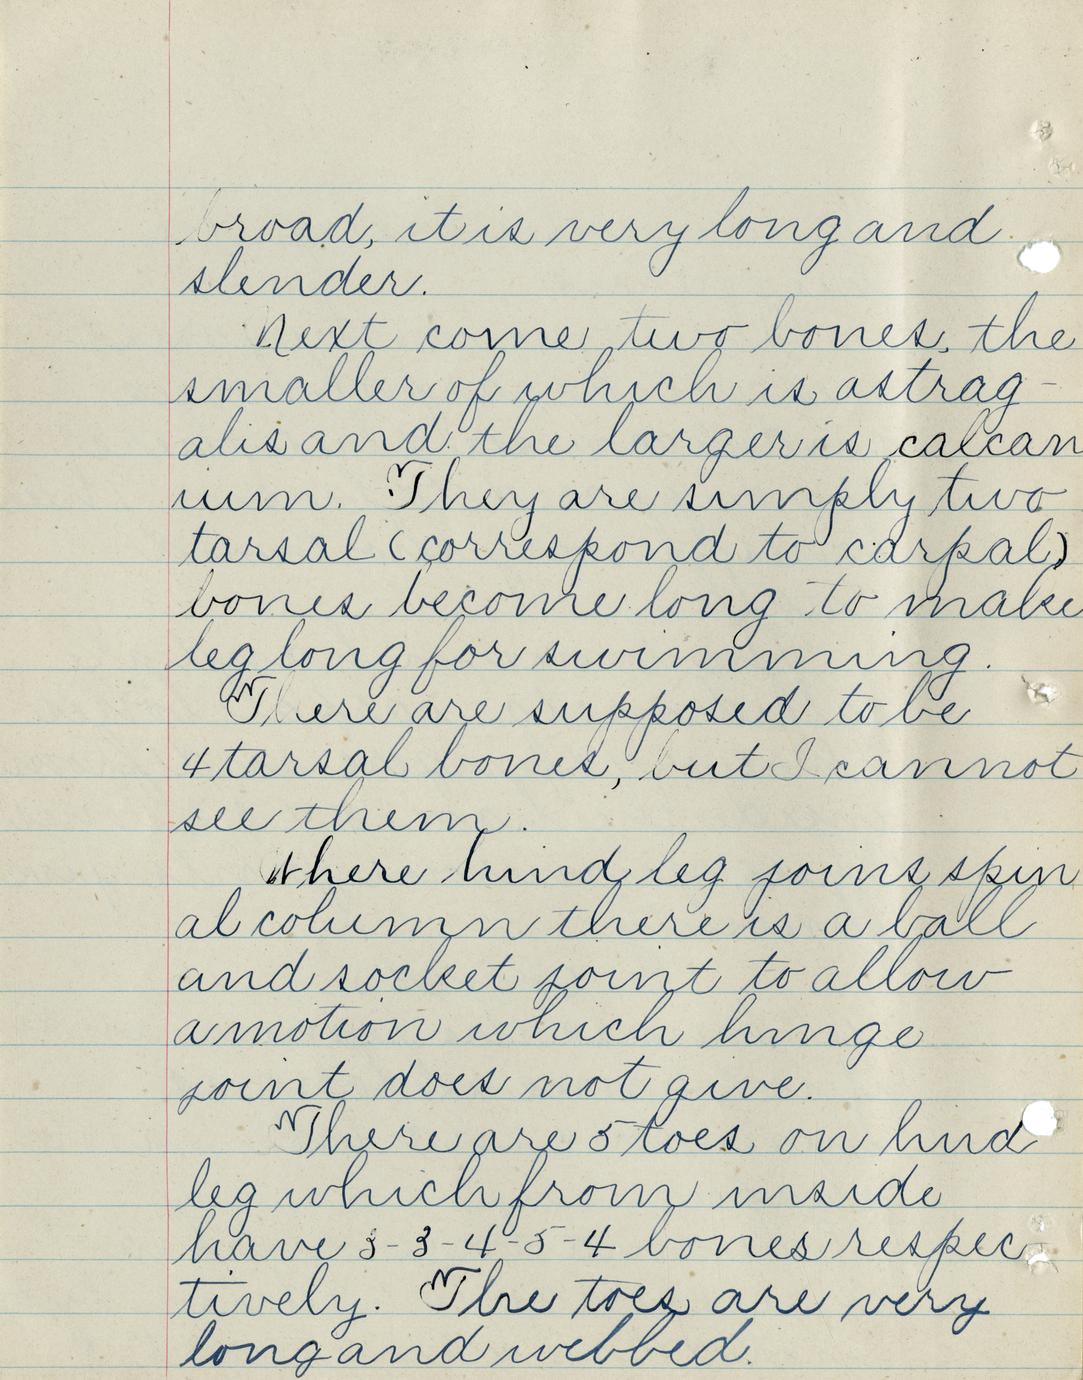 broad, it is very long and
slender.
Next come two bones, the
smaller of which is astrag-
alis and the larger is calcan
ium. They are simply two
tarsal (correspond to carpal)
bones become long to make
leg long for swimming.
There are supposed to be
4 tarsal bones, but I cannot
see them.
Where hind leg joins spin
al column there is a ball
and socket joint to allow
a motion which hinge
joint does not give.
There are 5 toes on hind
leg which from inside
have 3-3-4-5-4 bones respec
tively. The toes are very
long and webbed.